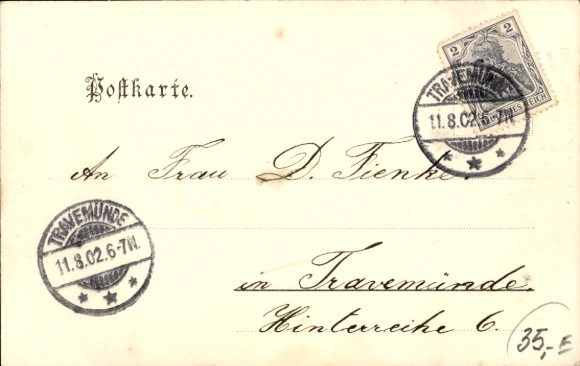 2 2
DEUTSCHES REICH
TRAVEMÜNDE
11.8.02.6-7N.
Postkarte.
An Frau D. Fienke.
TRAVEMÜNDE
11.8.02.6-7N.
in Travemünde.
Hinterreihe 6.
35,- E